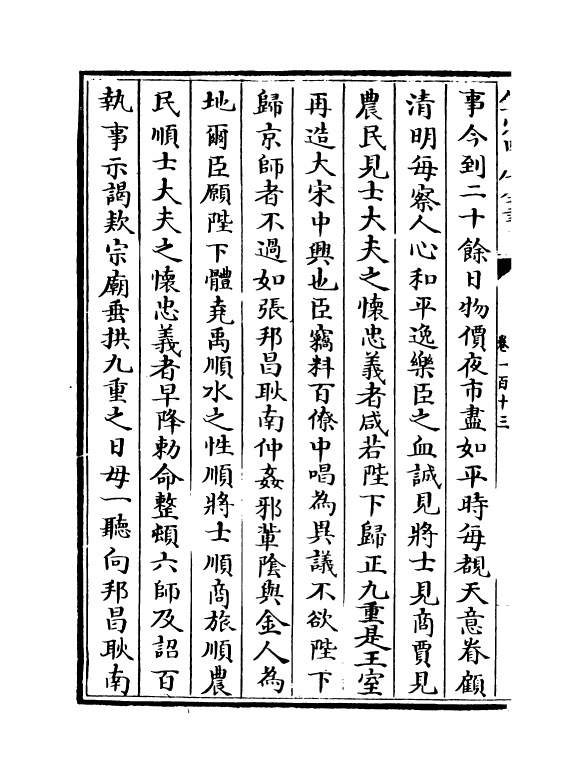 卷一百十三
事今到二十餘日物價夜市盡如平時每覩天意眷顧
清明每察人心和平逸樂臣之血誠見將士見商賈見
農民見士大夫之懷忠義者咸若陛下歸正九重是王室
再造大宋中興也臣竊料百僚中唱為異議不欲陛下
歸京師者不過如張邦昌耿南仲姦邪輩陰與金人為
地爾臣願陛下體堯禹順水之性順將士順商旅順農
民順士大夫之懷忠義者早降勅命整頓六師及詔百
執事示謁欵宗廟垂拱九重之日毋一聽向邦昌耿南